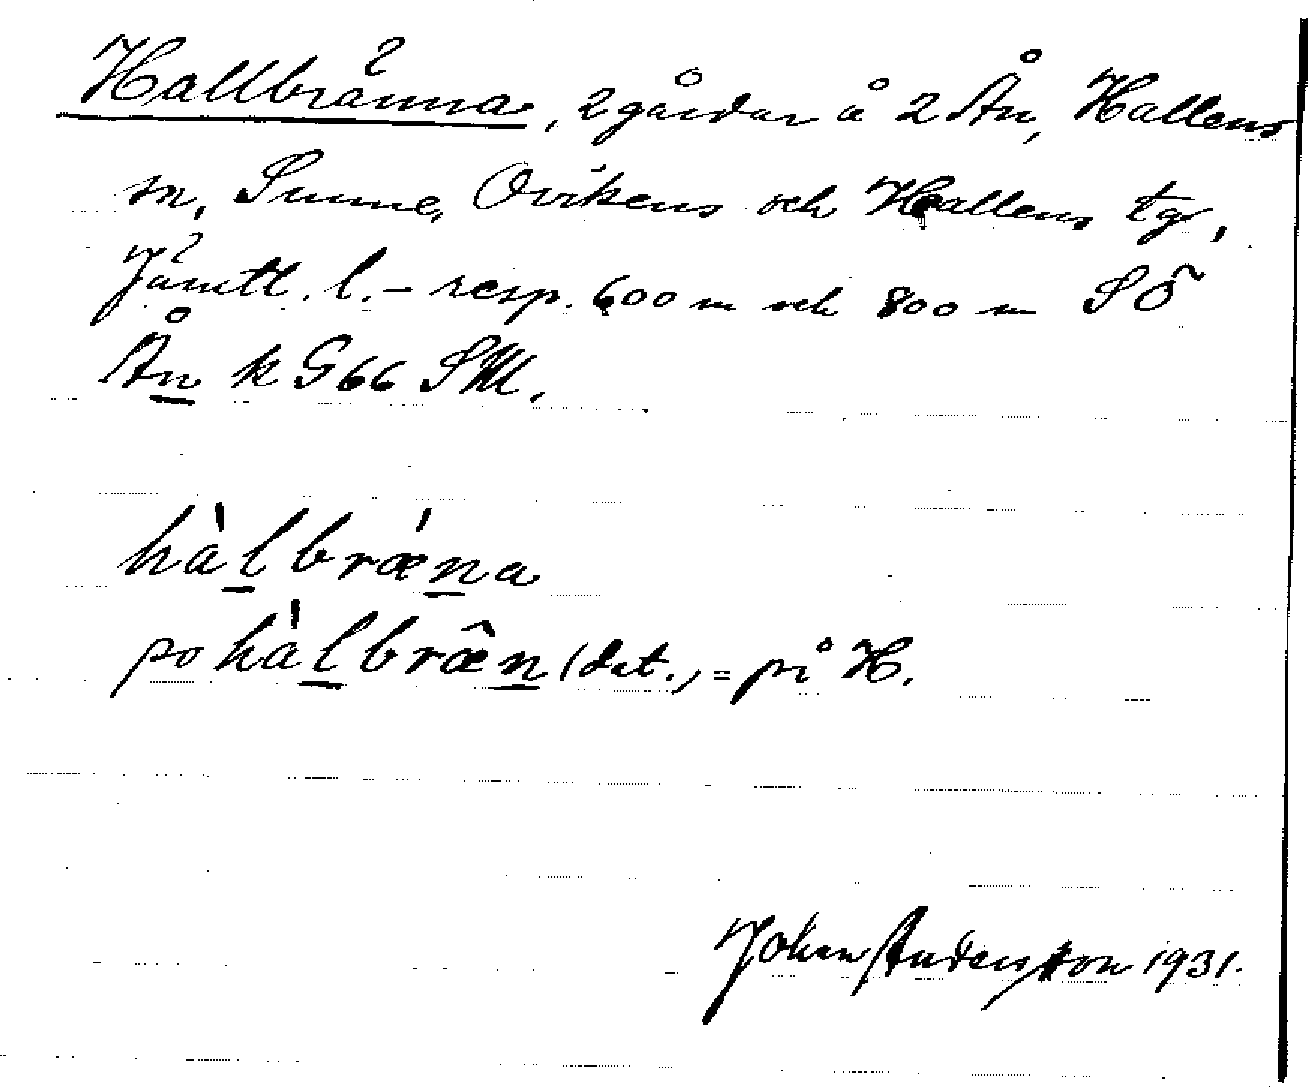 Hallbränna, 2 gårdar å 2 Ån, Hallens
sn, Sunne, Ovikens och Hallens tg,
Jämtl. l. – resp. 600 m och 800 m SÖ
Ån k G66 SW.
hàlbræ´na
po hàlbræ̂n (dat.) = på H.
Johan Andersson 1931.